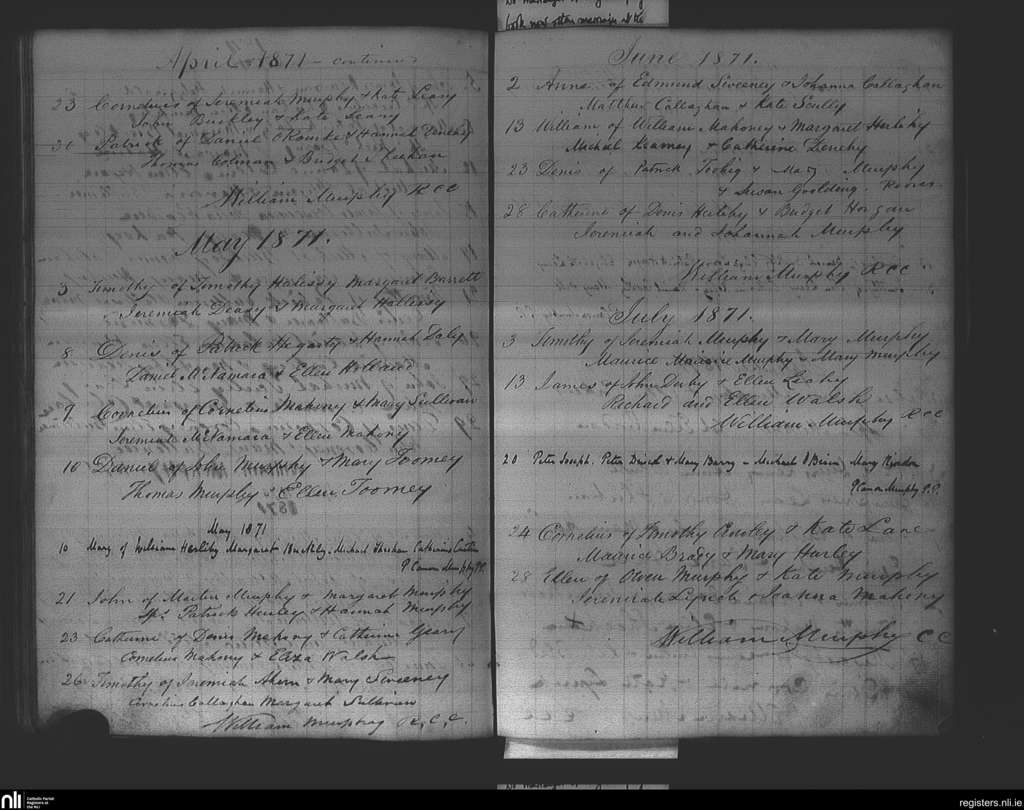 April 1871 - continued
23 Cornelius of Jeremiah Murphy & Kate Leary
John Buckley & Kate Leary
30 Patrick of Daniel O'Rourke & Hannah
Thomas Colman & Bridget
William Murphy RCC
May 1871.
3 Timothy of Timothy Halissy Margaret Barrett
Jeremiah Deady & Margaret Hallissy
8 Denis of Patrick Hegarty & Hannah Daly
Daniel McNamara & Ellen Holland
9 Cornelius of Cornelius Mahony & Mary Sullivan
Jeremiah McNamara & Ellen Mahony
10 Daniel of John Murphy & Mary Toomey
Thomas Murphy & Ellen Toomey
May 1871
10 Mary of William Herlihy Margaret Michael Catherine
P Canon Murphy P.P.
21 John of Martin Murphy & Margaret Murphy
Sps Patrick Hurley & Hannah Murphy
23 Catherine of Denis Mahony & Catherine Geary
Cornelius Mahony & Eliza Walsh
26 Timothy of Jeremiah Ahern & Mary Sweeney
Cornelius Callaghan Margaret Sullivan
William Murphy R.C.C.
book
June 1871.
2 Anne of Edmund Sweeney & Johanna Callaghan
Matthew Callaghan & Kate Scully
13 William of William Mahoney & Margaret Herlihy
Michael Leamey & Catherine
23 Denis of Patrick Toohig & Mary Murphy
& Susan Goulding.
28 Catherine of Denis Herlihy & Bridget Horgan
Jeremiah and Johannah Murphy
William Murphy RCC
July 1871.
3 Timothy of Jeremiah Murphy & Mary Murphy
Maurice Murphy & Mary Murphy
13 James of John Derby & Ellen Leahy
Richard and Ellen Walsh
William Murphy RCC
20 Peter Joseph. Peter & Mary Barry - Michael O'Brien Mary
P Canon Murphy P.P.
24 Cornelius of Timothy & Kate Lane
Maurice Brady & Mary Hurley
28 Ellen of Owen Murphy & Kate Murphy
Jeremiah Lynch & Johanna Mahony
William Murphy CC
nli Catholic Parish Registers at the NLI
registers.nli.ie